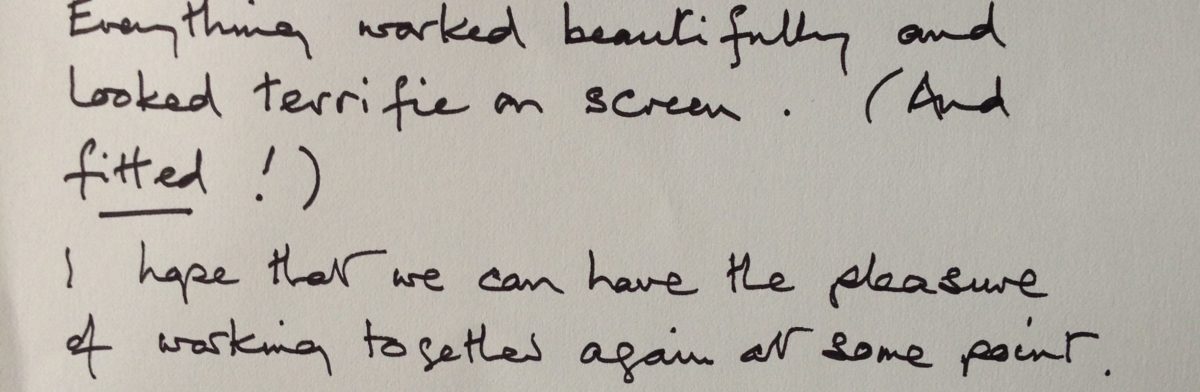 Everything worked beautifully and
looked terrific on screen. (And
fitted!)
I hope that we can have the pleasure
of working together again at some point.